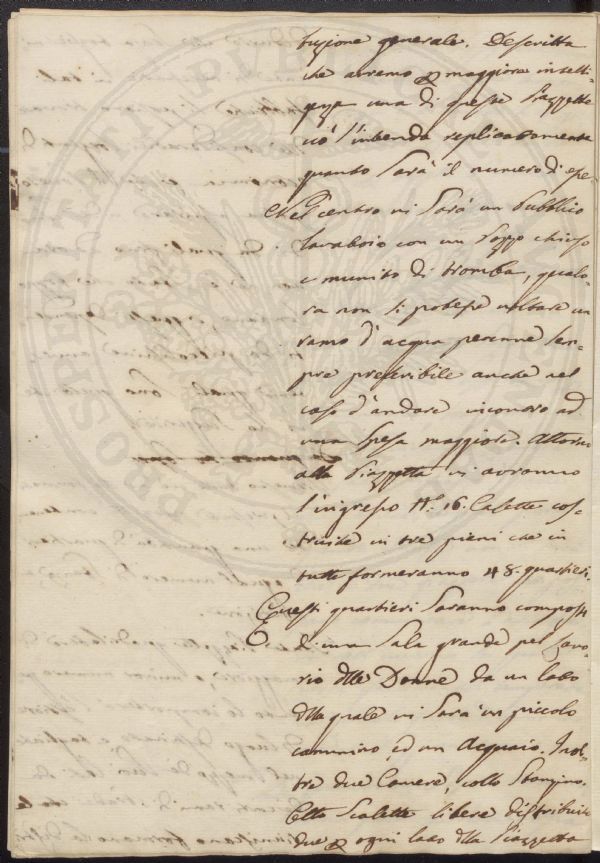 PROSPERITATI PVBLICÆ
buzione generale. Descritta
che avremo p maggiore intelli-
genza una di queste Piazzette
ciò s'intenda replicatamente
quanto sarà il numero di esse
Nel centro vi sarà un pubblico
lavaboio con un Pozzo chiuso
e munito di tromba, qualo-
ra non si potesse voltare un
ramo d'acqua perenne sem-
pre preferibile anche nel
caso d'andare incontro ad
una spesa maggiore. Attorno
alla Piazzetta vi avranno
l'ingresso N.° 16. Casette cos-
truite in tre piani che in
tutte formeranno 48. quartieri.
Questi quartieri saranno composti
di una Sala grande pel lavo-
rio dlle Donne da un lato
dlla quale vi sarà un piccolo
cammino, ed un Acquaio. Inol-
tre due Camere, collo Stanzino.
Otto Scalette libere distribuite
due p ogni lato dlla Piazzetta